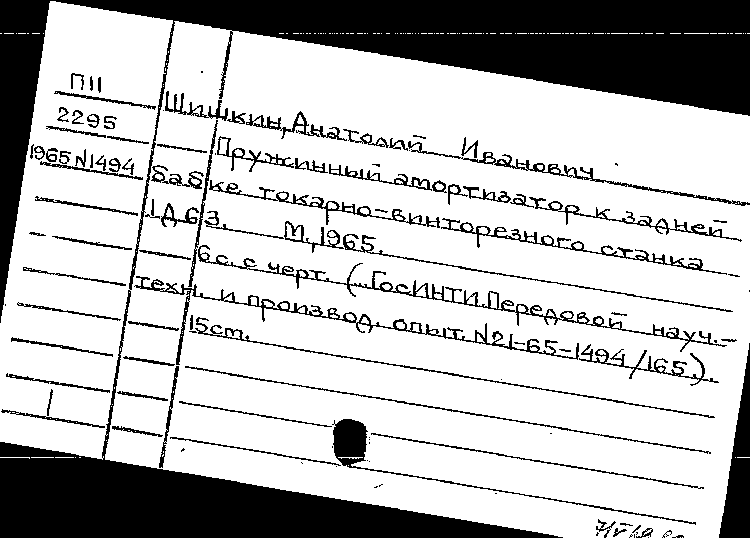 П11
2295
1965 N1494
Шишкин, Анатолий Иванович
Пружинный амортизатор к задней
бабке токарно-винторезного станка
1Д63. М., 1965.
6 с. с черт. (ГосИНТИ. Передовой науч.-
техн. и производ. опыт. N21-65-1494/165).
15см.